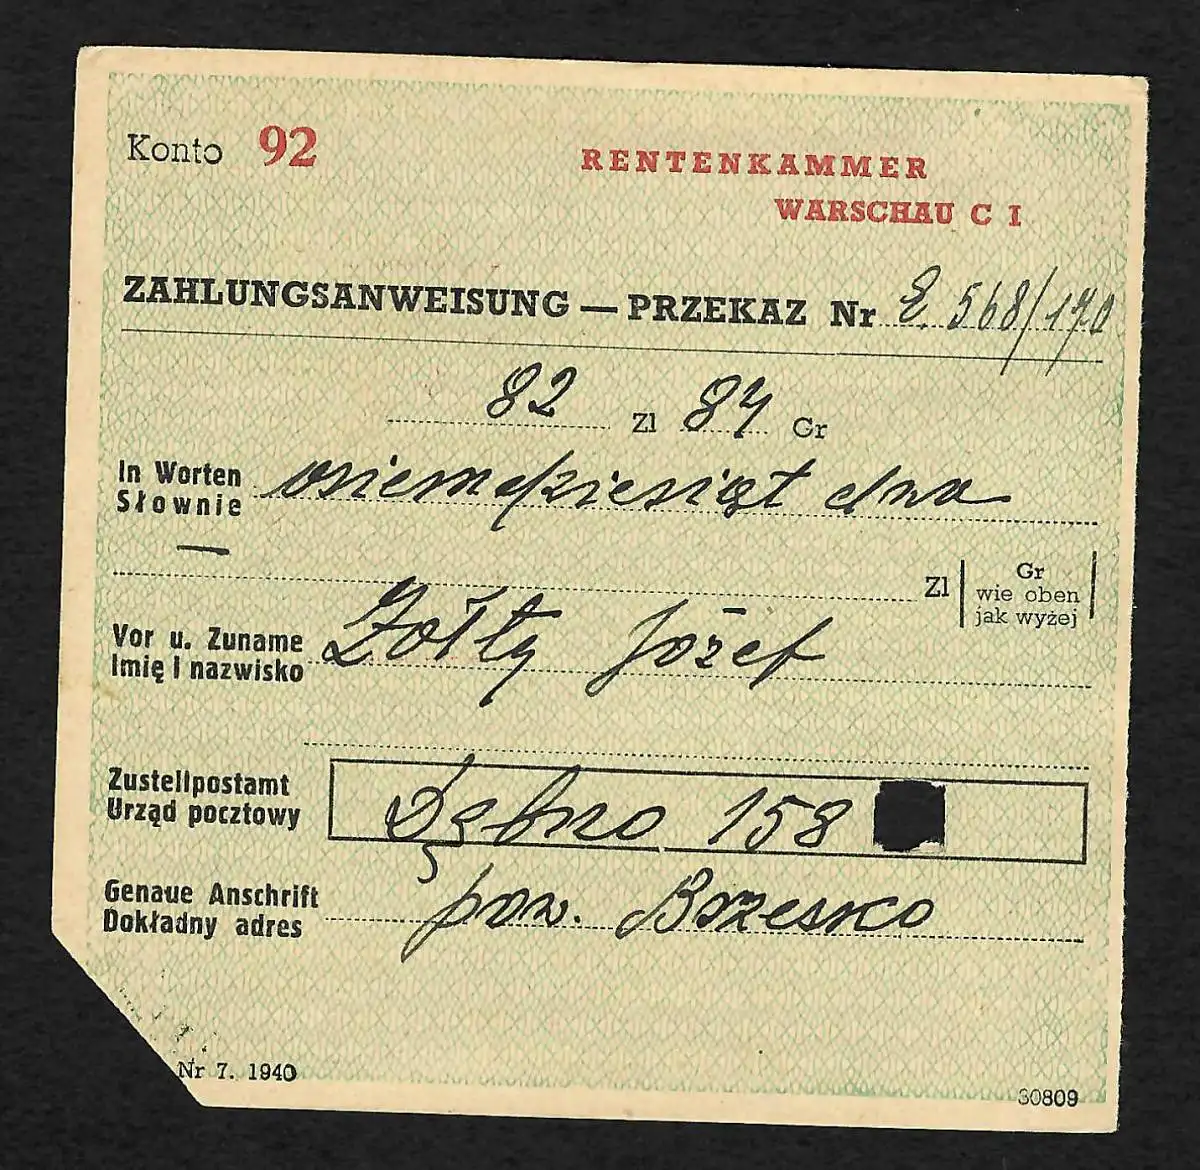 Konto 92
RENTENKAMMER
WARSCHAU C I
ZAHLUNGSANWEISUNG — PRZEKAZ Nr E. 568/170
82 Zl 84 Gr
In Worten
Słownie
osiemdziesiąt dwa
—
Zl
Gr
wie oben
jak wyżej
Vor u. Zuname
Imię i nazwisko
Żołty Józef
Zustellpostamt
Urząd pocztowy
Dębno 158
Genaue Anschrift
Dokładny adres
pow. Brzesko
Nr 7. 1940
30809